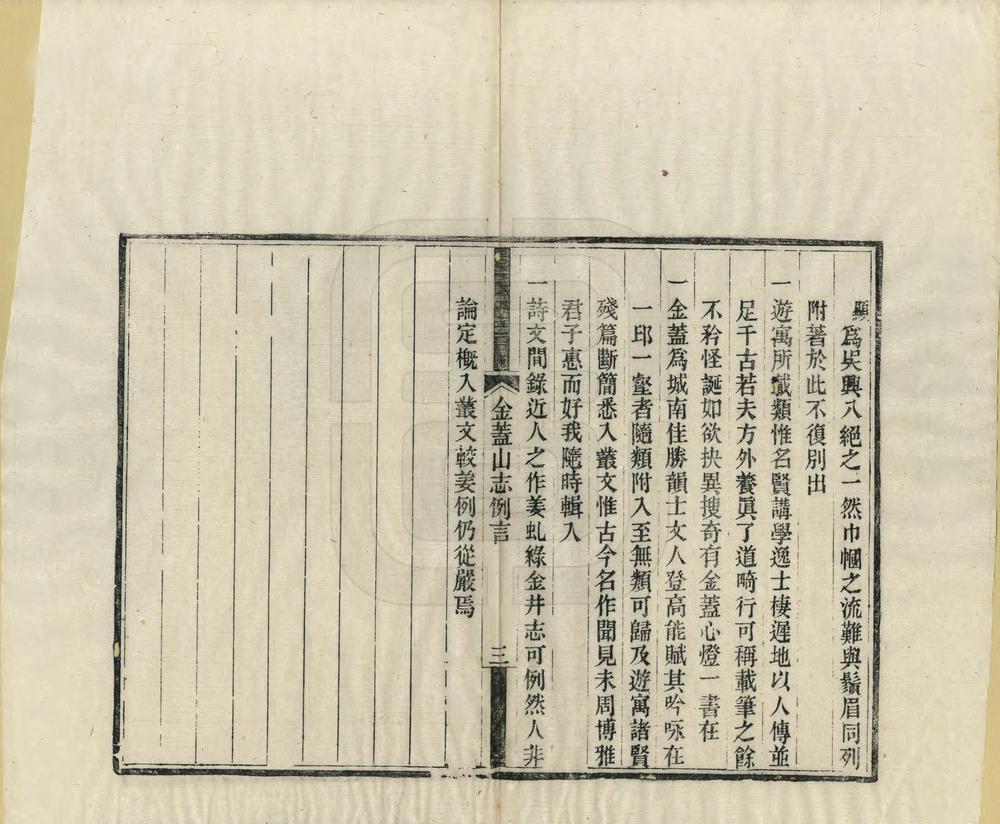 顯爲吳興八絕之一然巾幗之流難與鬚眉同列
附著於此不復別出
一遊寓所載類惟名賢講學逸士棲遲地以人傳並
足千古若夫方外養眞了道畸行可稱載筆之餘
不矜怪誕如欲抉異搜奇有金蓋心燈一書在
一金蓋爲城南佳勝韻士文人登高能賦其吟咏在
一邱一壑者隨類附入至無類可歸及遊寓諸賢
殘篇斷簡悉入叢文惟古今名作聞見未周博雅
君子惠而好我隨時輯入
一詩文間錄近人之作姜虬綠金井志可例然人非
金蓋山志例言
三
論定槪入叢文較姜例仍從嚴焉